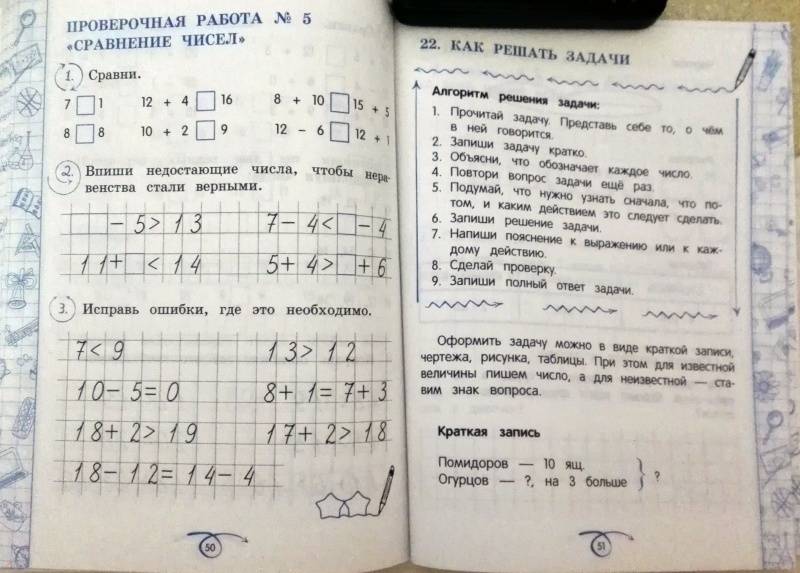 ПРОВЕРОЧНАЯ РАБОТА № 5
«СРАВНЕНИЕ ЧИСЕЛ»
1. Сравни.
7 □ 1 12 + 4 □ 16 8 + 10 □ 15 + 5
8 □ 8 10 + 2 □ 9 12 − 6 □ 12 + 1
2. Впиши недостающие числа, чтобы нера-
венства стали верными.
□ − 5 > 13 7 − 4 < □ − 4
11 + □ < 14 5 + 4 > □ + 6
3. Исправь ошибки, где это необходимо.
7 < 9 13 > 12
10 − 5 = 0 8 + 1 = 7 + 3
18 + 2 > 19 17 + 2 > 18
18 − 12 = 14 − 4
50
22. КАК РЕШАТЬ ЗАДАЧИ
Алгоритм решения задачи:
1. Прочитай задачу. Представь себе то, о чём
в ней говорится.
2. Запиши задачу кратко.
3. Объясни, что обозначает каждое число.
4. Повтори вопрос задачи ещё раз.
5. Подумай, что нужно узнать сначала, что по-
том, и каким действием это следует сделать.
6. Запиши решение задачи.
7. Напиши пояснение к выражению или к каж-
дому действию.
8. Сделай проверку.
9. Запиши полный ответ задачи.
Оформить задачу можно в виде краткой записи,
чертежа, рисунка, таблицы. При этом для известной
величины пишем число, а для неизвестной — ста-
вим знак вопроса.
Краткая запись
Помидоров — 10 ящ.
Огурцов — ?, на 3 больше } ?
51